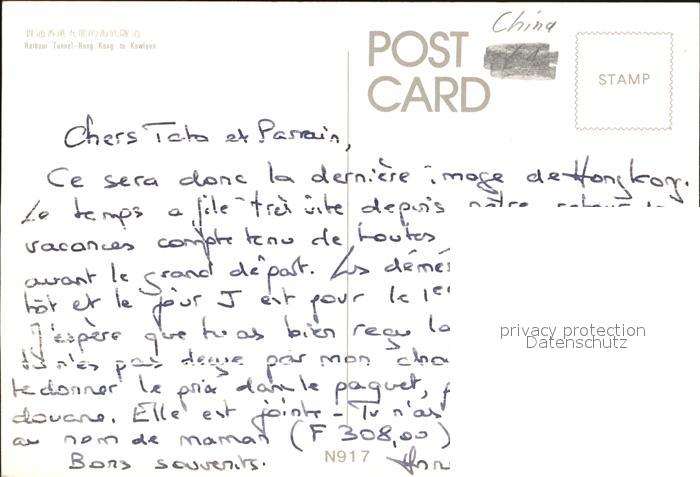 貫通香港九龍的海底隧道
Harbour Tunnel-Hong Kong to Kowloon
China
POST
CARD
STAMP
Chers Tata et Parrain,
Ce sera donc la dernière image de Hongkong.
Le temps a filé très vite depuis notre retour
vacances compte tenu de toutes
avant le grand départ. Les démé
tôt et le jour J est pour le 1er
J'espère que tu as bien reçu la
tu n'es pas déçue par mon cho
te donner le prix dans le paquet,
douane. Elle est jointe - Tu n'as
au nom de maman (F 308,00)
Bons souvenirs.
N917
privacy protection
Datenschutz